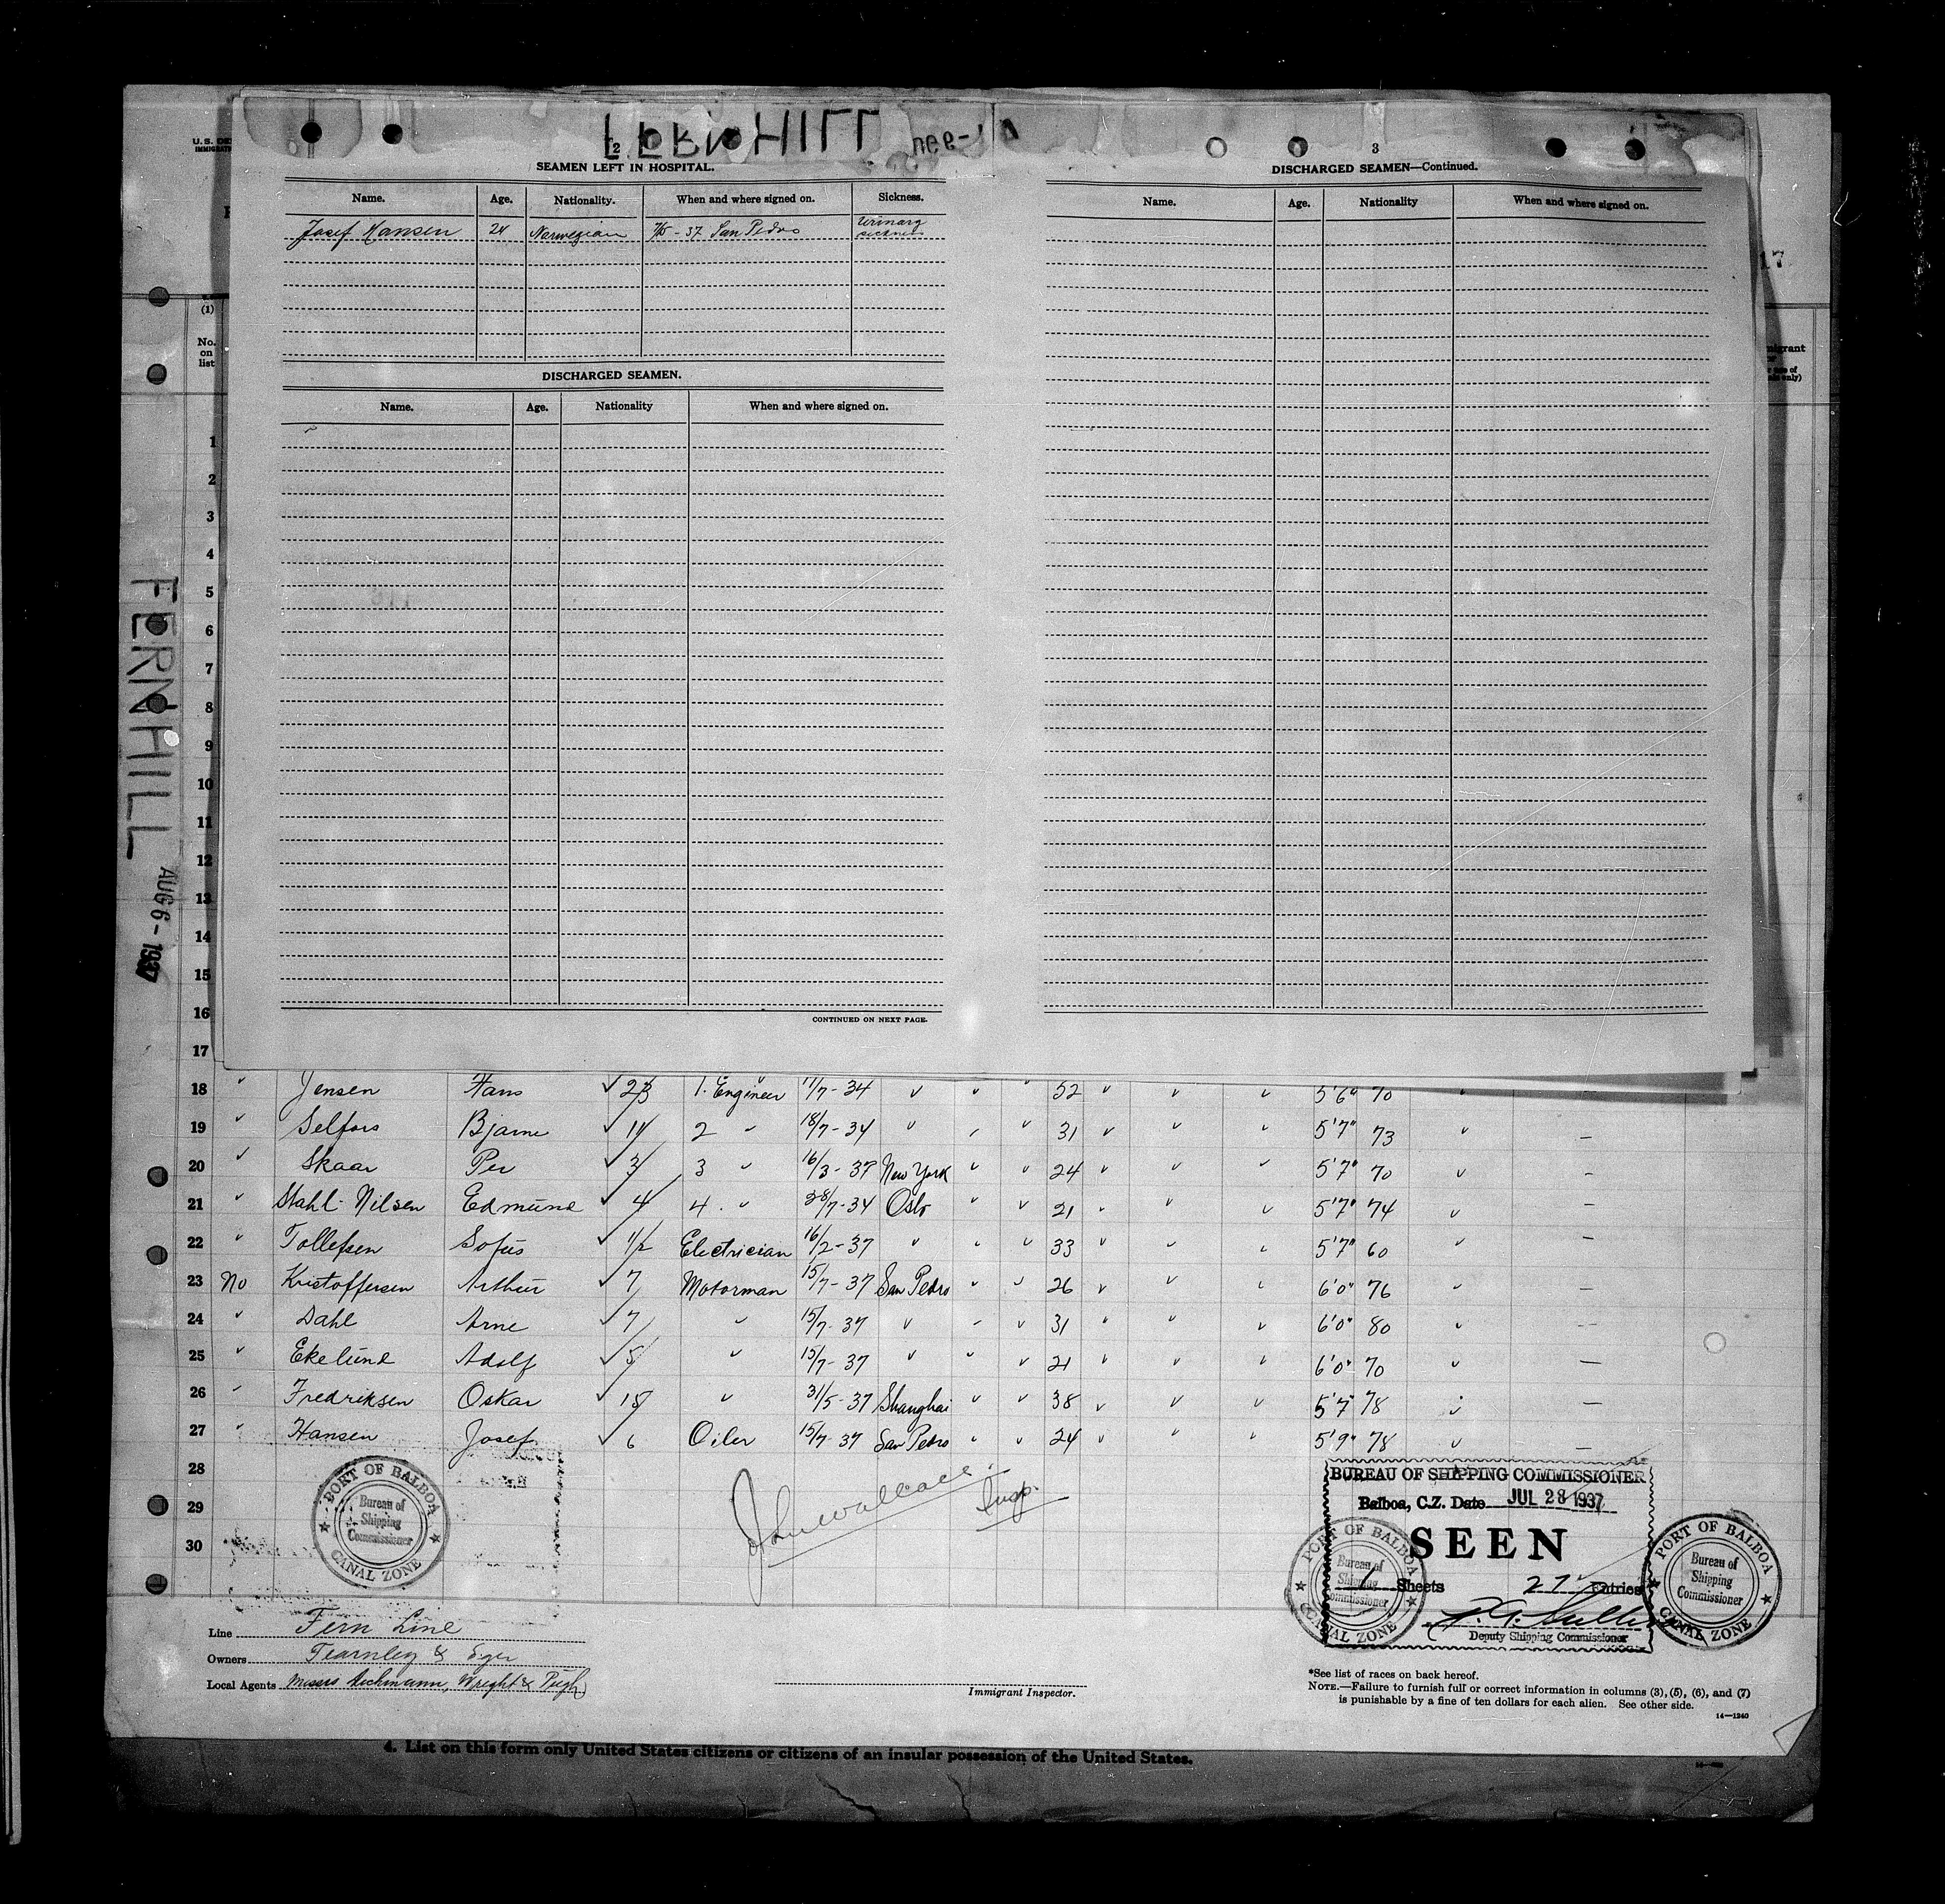 FERNHILL
AUG 6 - 1937
U.S. DE
IMMIGRAT
17
(1)
No. on list
migrant
2
SEAMEN LEFT IN HOSPITAL.
Name. Age. Nationality. When and where signed on. Sickness.
Josef Hansen 24 Norwegian 7/5 - 37 San Pedro Urinary sickness
DISCHARGED SEAMEN.
Name. Age. Nationality When and where signed on.
CONTINUED ON NEXT PAGE.
3
DISCHARGED SEAMEN—Continued.
Name. Age. Nationality When and where signed on.
1
2
3
4
5
6
7
8
9
10
11
12
13
14
15
16
17
18 ✓ Jensen Hans ✓ 23 1. Engineer 11/7 - 34 " " " 52 " " " 5'6" 70 "
19 ✓ Selfors Bjarne ✓ 14 2 " 18/7 - 34 " " " 31 " " " 5'7" 73 " —
20 ✓ Skaar Per ✓ 3 3 " 16/3 - 37 New York " " 24 " " " 5'7" 70 " —
21 " Stahl-Nilsen Edmund ✓ 4 4. " 28/7 - 34 Oslo " " 21 " " " 5'7" 74 " —
22 " Tollefsen Sofus ✓ 1/2 Electrician 16/2 - 37 " " " 33 " " " 5'7" 60 " —
23 No Kristoffersen Arthur ✓ 7 Motorman 15/7 - 37 San Pedro " " 26 " " " 6'0" 76 " —
24 " Dahl Arne ✓ 7 " 15/7 - 37 " " " 31 " " " 6'0" 80 " —
25 " Ekelund Adolf ✓ 5 " 15/7 - 37 " " " 21 " " " 6'0" 70 " —
26 " Fredriksen Oskar ✓ 15 " 31/5 - 37 Shanghai " " 38 " " " 5'7" 78 " —
27 " Hansen Josef ✓ 6 Oiler 15/7 37 San Pedro " " 24 " " " 5'9" 78 " —
28
29
30
PORT OF BALBOA
Bureau of Shipping Commissioner
CANAL ZONE
John Wallace Insp.
BUREAU OF SHIPPING COMMISSIONER
Balboa, C.Z. Date JUL 28 1937
SEEN
1 Sheets 27 Entries
Deputy Shipping Commissioner
PORT OF BALBOA
Bureau of Shipping Commissioner
CANAL ZONE
PORT OF BALBOA
Bureau of Shipping Commissioner
CANAL ZONE
Line Fern Line
Owners Fearnley & Eger
Local Agents Messrs Aschmann, Wright & Pugh
Immigrant Inspector.
*See list of races on back hereof.
NOTE.—Failure to furnish full or correct information in columns (3), (5), (6), and (7)
is punishable by a fine of ten dollars for each alien. See other side.
14—1240
4. List on this form only United States citizens or citizens of an insular possession of the United States.